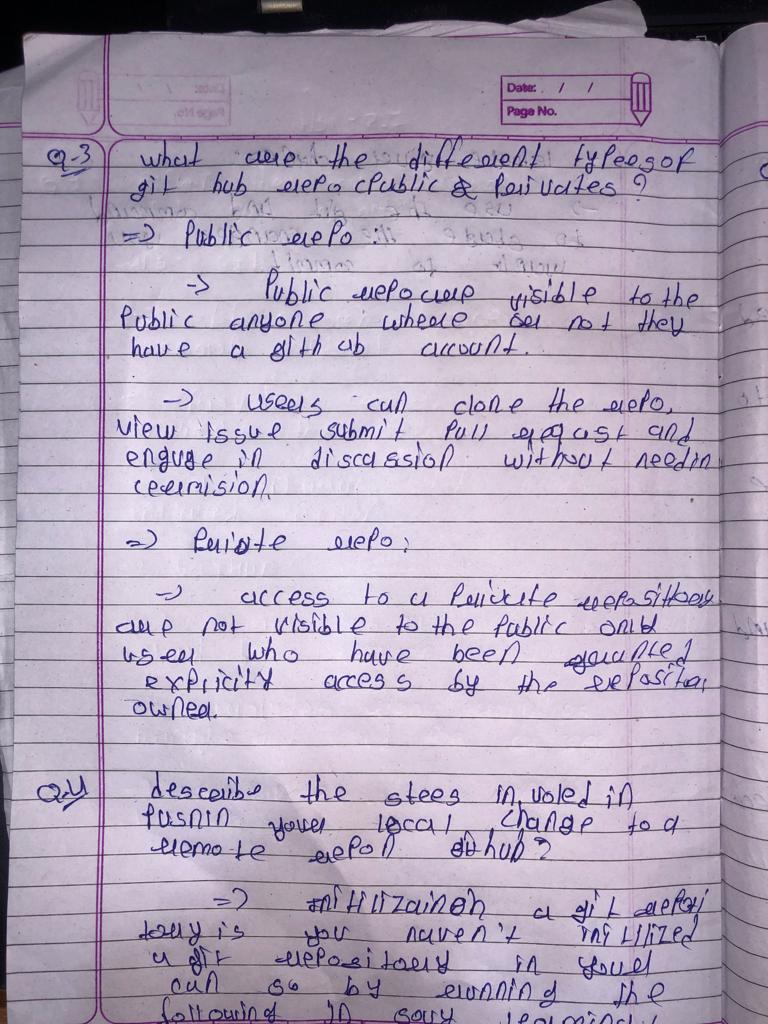 Date: / /
Page No.
Q-3 what are the different types of
git hub repo (Public & Private) ?
=> Public repo :
-> Public repo are visible to the
Public anyone where or not they
have a github account.
-> users can clone the repo,
view issue submit Pull request and
enguge in discussion without needin
permision.
=> Private repo :
-> access to a Private repository
are not visible to the Public only
user who have been granted
explicity access by the repositor
owner.
Q.4 describe the steps in voled in
Pushin your local change to a
remote repo github?
=> a git reposi
tory is you haven't initilized
a git repository in your
can so by running the
following in